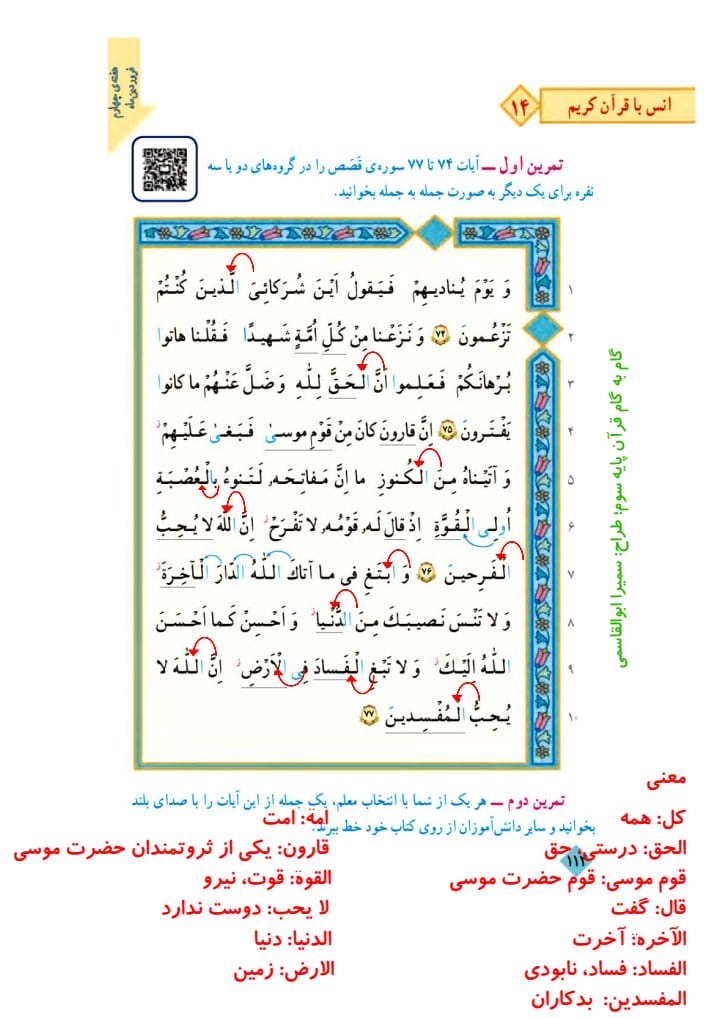 هفته‌ی چهارم
فروردین‌ماه
انس با قرآن کریم
۱۴
تمرین اول ــ آیات ۷۴ تا ۷۷ سوره‌ی قَصَص را در گروه‌های دو یا سه
نفره برای یک دیگر به صورت جمله به جمله بخوانید.
۱ وَ یَوْمَ یُنادیهِمْ فَیَقولُ اَیْنَ شُرَکائِیَ الَّذینَ کُنْتُمْ
۲ تَزْعُمونَ ۷۴ وَ نَزَعْنا مِنْ کُلِّ اُمَّةٍ شَهیدًا فَقُلْنا هاتوا
۳ بُرْهانَکُمْ فَعَلِموا اَنَّ الْحَقَّ لِلّٰهِ وَ ضَلَّ عَنْهُمْ ما کانوا
۴ یَفْتَرونَ ۷۵ اِنَّ قارونَ کانَ مِنْ قَوْمِ موسیٰ فَبَغیٰ عَلَیْهِمْ ۖ
۵ وَ آتَیْناهُ مِنَ الْکُنوزِ ما اِنَّ مَفاتِحَهُ لَتَنوءُ بِالْعُصْبَةِ
۶ اُولِی الْقُوَّةِ اِذْ قالَ لَهُ قَوْمُهُ لا تَفْرَحْ ۖ اِنَّ اللّٰهَ لا یُحِبُّ
۷ الْفَرِحینَ ۷۶ وَ ابْتَغِ فی ما آتاکَ اللّٰهُ الدّارَ الْآخِرَةَ ۖ
۸ وَ لا تَنْسَ نَصیبَکَ مِنَ الدُّنْیا ۖ وَ اَحْسِنْ کَما اَحْسَنَ
۹ اللّٰهُ اِلَیْکَ ۖ وَ لا تَبْغِ الْفَسادَ فِی الْاَرْضِ ۖ اِنَّ اللّٰهَ لا
۱۰ یُحِبُّ الْمُفْسِدینَ ۷۷
گام به گام قرآن پایه سوم؛ طراح: سمیرا ابوالقاسمی
تمرین دوم ــ هر یک از شما با انتخاب معلم، یک جمله از این آیات را با صدای بلند
بخوانید و سایر دانش‌آموزان از روی کتاب خود خط ببرند.
۱۱۲
معنی
کل: همه
امه: امت
الحق: درستی، حق
قارون: یکی از ثروتمندان حضرت موسی
قوم موسی: قوم حضرت موسی
القوة: قوت، نیرو
قال: گفت
لا یحب: دوست ندارد
الآخره: آخرت
الدنیا: دنیا
الفساد: فساد، نابودی
الارض: زمین
المفسدین: بدکاران